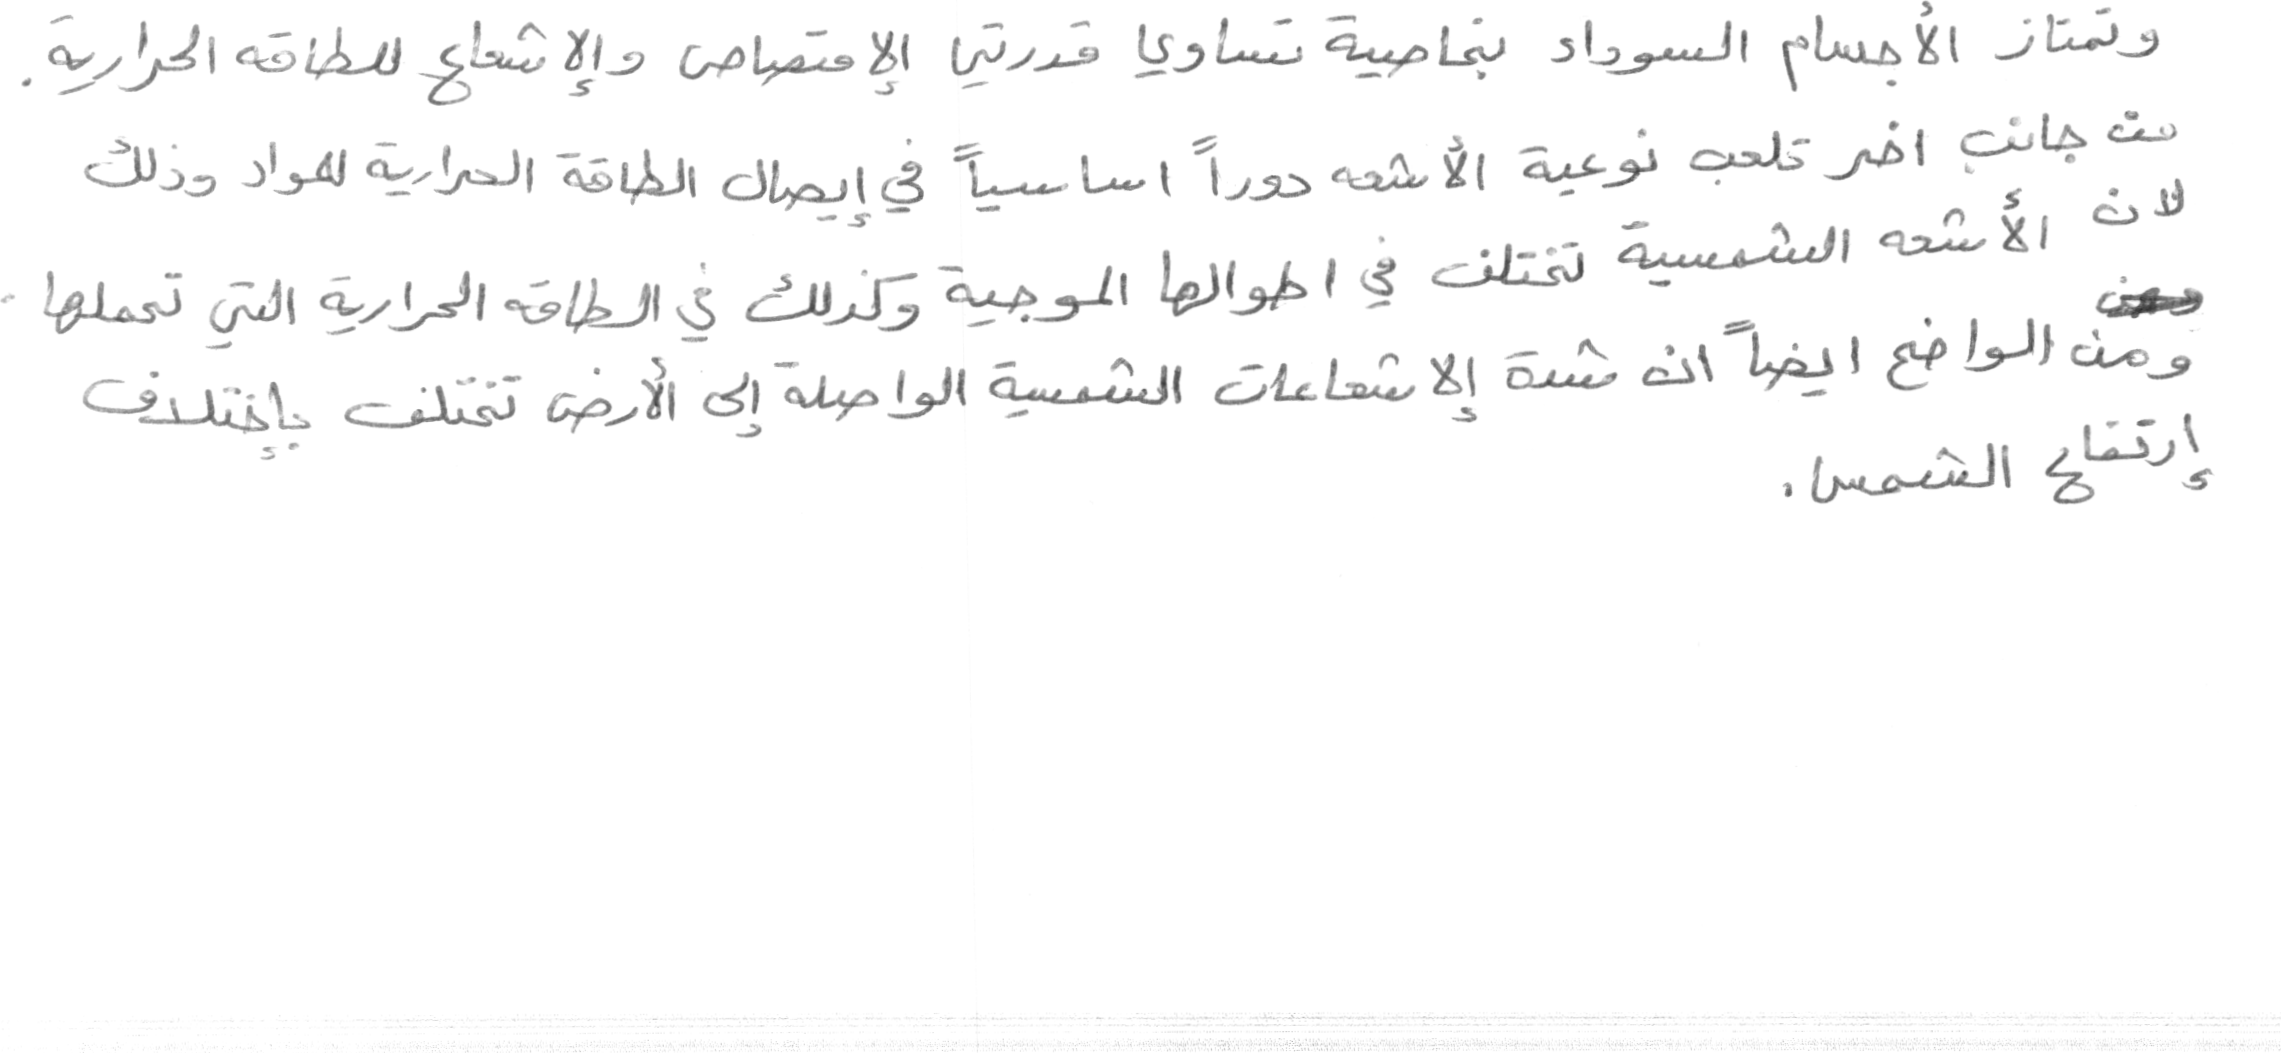 وتمتاز الأجسام السوداء بخاصية تساوي قدرتي الإمتصاص والإشعاع للطاقه الحرارية.
من جانب اخر تلعب نوعية الأشعه دوراً اساسياً في إيصال الطاقة الحرارية للمواد وذلك
لان الأشعه الشمسية تختلف في اطوالها الموجية وكذلك في الطاقه الحرارية التي تحملها.
ومن الواضح ايضاً ان شدة الإشعاعات الشمسية الواصلة إلى الأرض تختلف بإختلاف
إرتفاع الشمس.